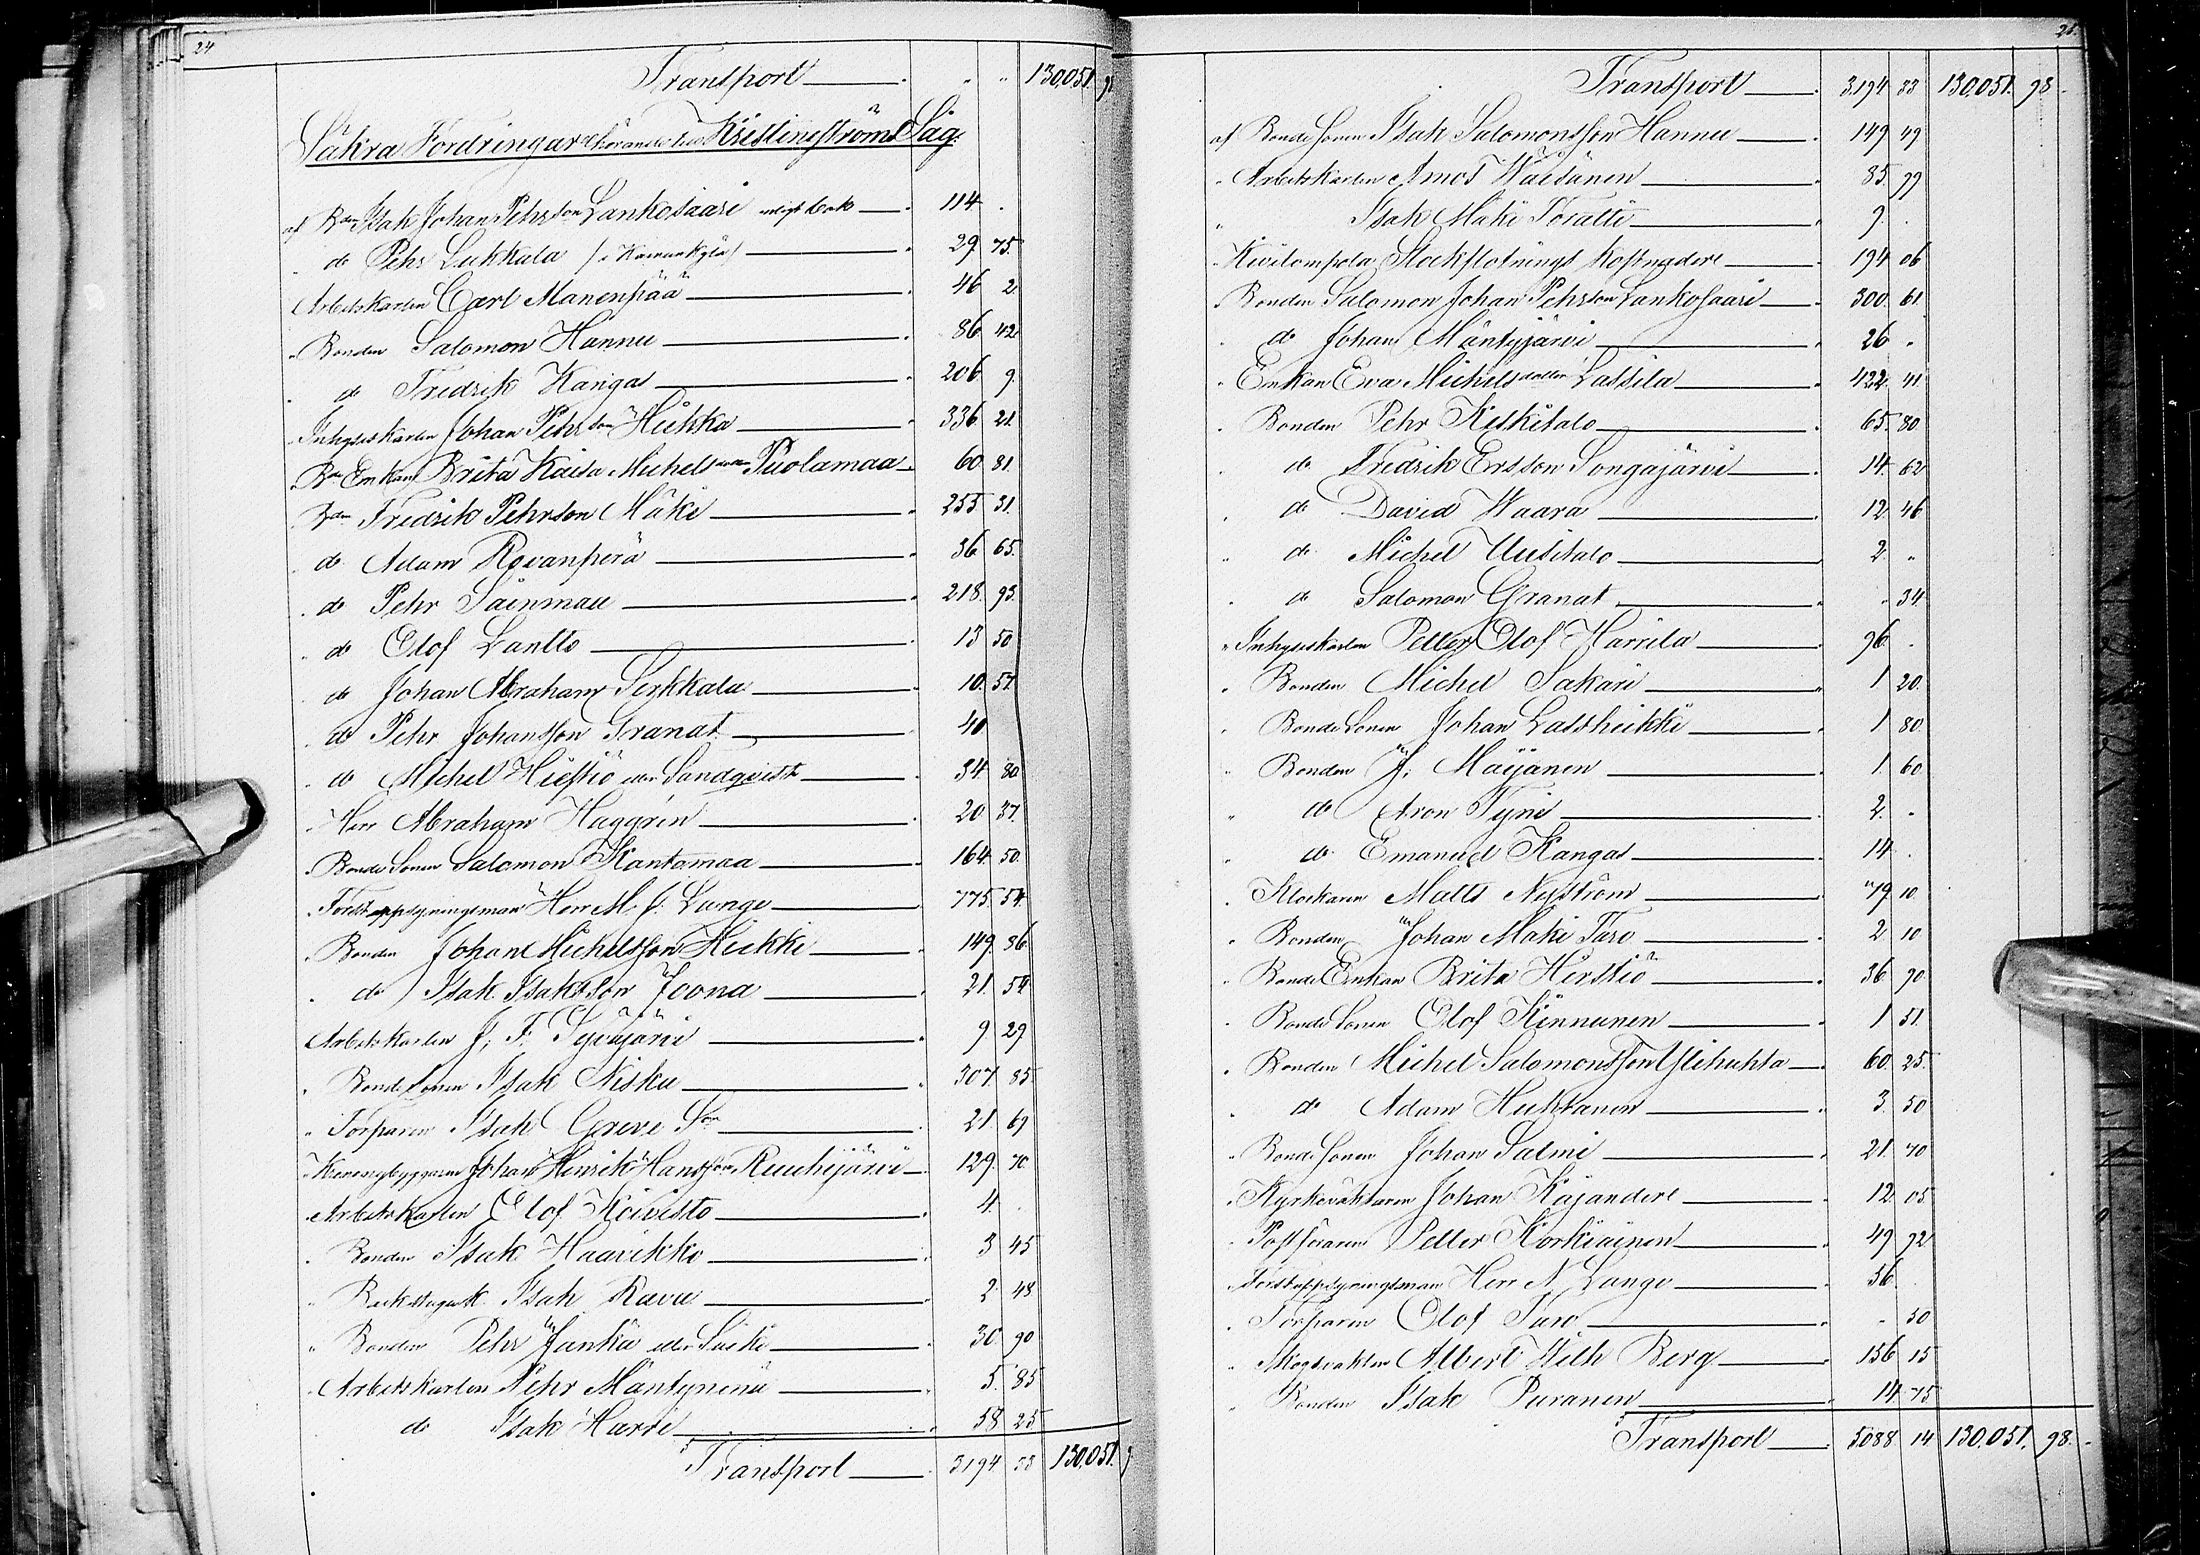 24
Transport " " 130,051. 98
Säkra Fordringar tillhörande till Kristineströms Såg.
af Bdn Isak Johan Pehrsson Lankosaari enligt bok 114 .
" do Pehr Lukkala 29. 75.
Arbetskarlen Carl Manenpää 46 2.
" Bonden Salomon Hannu 86 42
" do Fredrik Kangas 206 9.
" Inhyseskarlen Johan Pehrson Hiukka 336 21.
" Bde Enkan Brita Kaisa Michelsdotter Puolamaa 60. 81.
" Bdn Fredrik Pehrson Mäki 255 31.
" do Adam Rovanperä 36 65.
" do Pehr Säinmaa 218. 93.
" do Olof Lantto 13 50
" do Johan Abraham Serkkala 10. 57.
" do Pehr Johansson Granat 40
" do Michel Hiestiö eller Sandqvist 34 80.
" Herr Abraham Häggrén 20 37.
" Bonde Sonen Salomon Kantomaa 164. 50.
" Forstuppsyningsman Herr M. J. Lange 775. 54.
" Bonden Johan Michelsson Heikki 149. 36.
" do Isak Isaksson Joona 21. 54
Arbetskarlen J. F. Syväjärvi 9. 29
" Bonde Sonen Isak Niska 307 85
" Torparen Isak Greve Sr 21 69
" Johan Henrik Hansson Ruuhijärvi 129. 70
" Arbetskarlen Olof Koivisto 4. .
" Bonden Isak Haavikko 3 45
" Backstuguk. Isak Rava 2. 48
" Bonden Pehr Junka eller Suikki 30. 90
" Arbetskarlen Pehr Mäntyniemi 5. 85
do Isak Harri 58 25
Transport 3194 33 130,051. 9
25.
Transport 3194 33 130,051. 98
af Bonde Sonen Isak Salomonsson Hannu 149 49
" Arbetskarlen Amos Wäisänen 85. 99
" Isak Mäki Toratti 9. .
" Kivilompola Stockflotnings kostnader 194 06
" Bonden Salomon Johan Pehrson Lankosaari 300. 61.
" do Johan Mäntyjärvi 26 "
" Enkan Eva Michelsdotter Lassila 422. 41.
" Bonden Pehr Keskitalo 65. 80
" do Fredrik Ersson Songajärvi 14. 62
" do David Waara 12. 46
" do Michel Uusitalo 2. "
" do Salomon Granat " 34.
" Inhyseskarlen Petter Olof Harrila 96. .
" Bonden Michel Sakari 1 20.
" Bonde Sonen Johan Lassheikki 1 80.
" Bonden J. Mäijänen 1. 60
" do Aron Tyni 2. "
" do Emanuel Kangas 14 .
" Klockaren Matts Nyström 79. 10.
" Bonden Johan Mäki Taro 2 10
" Bonde Enkan Brita Hirstiö 36 90
" Bonde Sonen Olof Kinnunen 1 51.
" Bonden Michel Salomonsson Ylihuhta 60. 25.
" do Adam Huhtanen 3. 50
" Bonde Sonen Johan Salmi 21. 70
" Kyrkovaktaren Johan Kajander 12 05
" Postföraren Petter Korkiainen 49 92
" Forstuppsyningsman Herr N. Lange 56. .
" Torparen Olof Taro " 50
" Skogvaktaren Albert Wilh Berg 156 15
" Bonden Isak Puranen 14. 75
Transport 5088 14 130,051. 98.